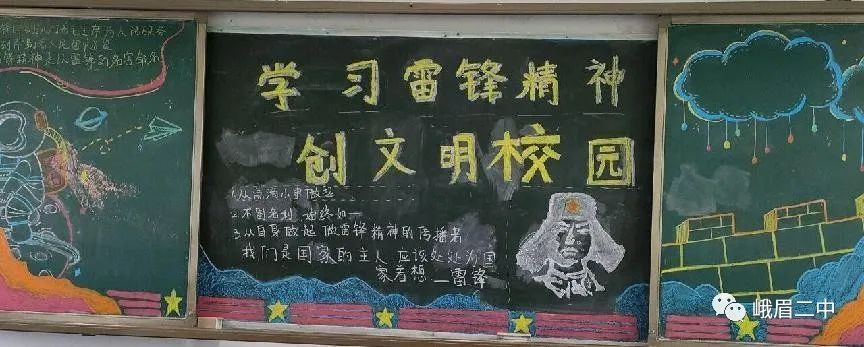 学习雷锋精神
创文明校园
1.从点滴小事做起
2.不图名利 始终如一
3.从自身做起 做雷锋精神的传播者
我们是国家的主人 应该处处为国
家着想 —雷锋
峨眉二中